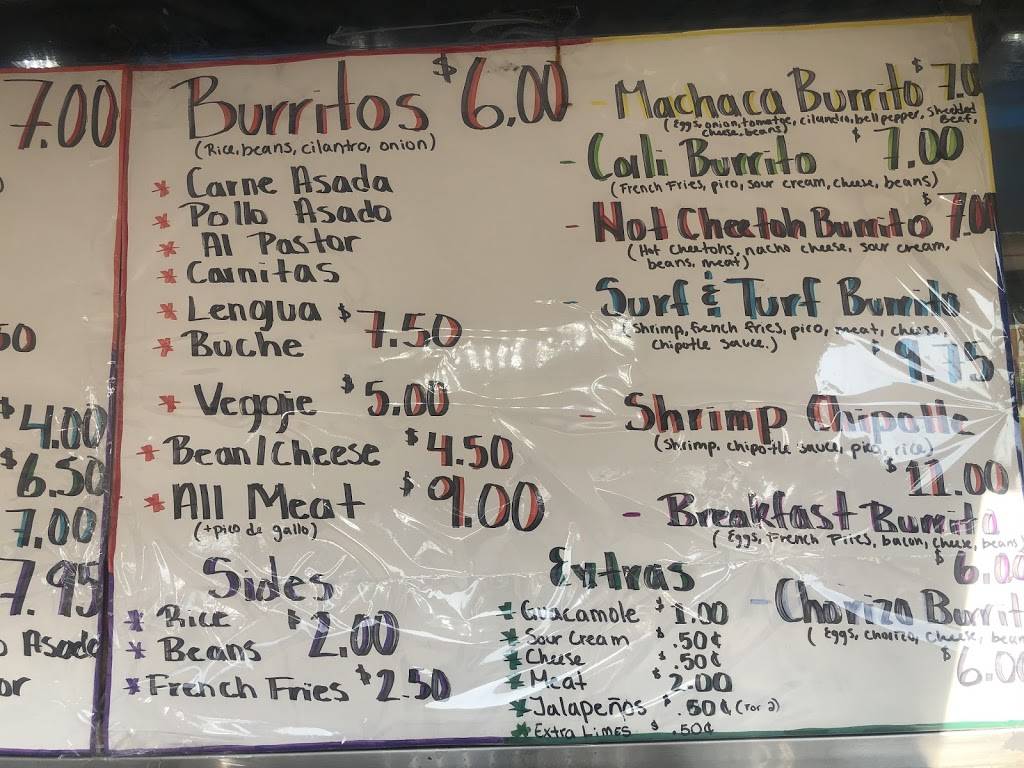 7.00
50
$4.00
$6.50
7.00
7.95
Asado
or
Burritos $6.00
(Rice, beans, cilantro, onion)
* Carne Asada
* Pollo Asado
* Al Pastor
* Carnitas
* Lengua $7.50
* Buche
* Veggie $5.00
* Bean/Cheese $4.50
* All Meat $9.00
(+pico de gallo)
Sides
* Rice $2.00
* Beans
* French Fries $2.50
- Machaca Burrito $7.0
(Eggs, onion, tomatoe, cilandro, bell pepper, Shredded Beef,
cheese, beans)
- Cali Burrito $7.00
(French Fries, pico, sour cream, cheese, beans)
- Hot Cheetoh Burrito $7.00
(Hot Cheetohs, nacho cheese, sour cream,
beans, meat)
- Surf & Turf Burrito
(Shrimp, french fries, pico, meat, cheese,
chipotle sauce.)
$9.75
- Shrimp Chipotle
(Shrimp, chipotle sauce, pico, rice)
$11.00
- Breakfast Burrito
(Eggs, French Fries, bacon, cheese, beans)
$6.00
- Chorizo Burrit
(Eggs, chorizo, cheese, bean
$6.00
Extras
* Guacamole $1.00
* Sour Cream $.50¢
* Cheese $.50¢
* Meat $2.00
* Jalapeños $.50¢ (for 2)
* Extra Limes $.50¢